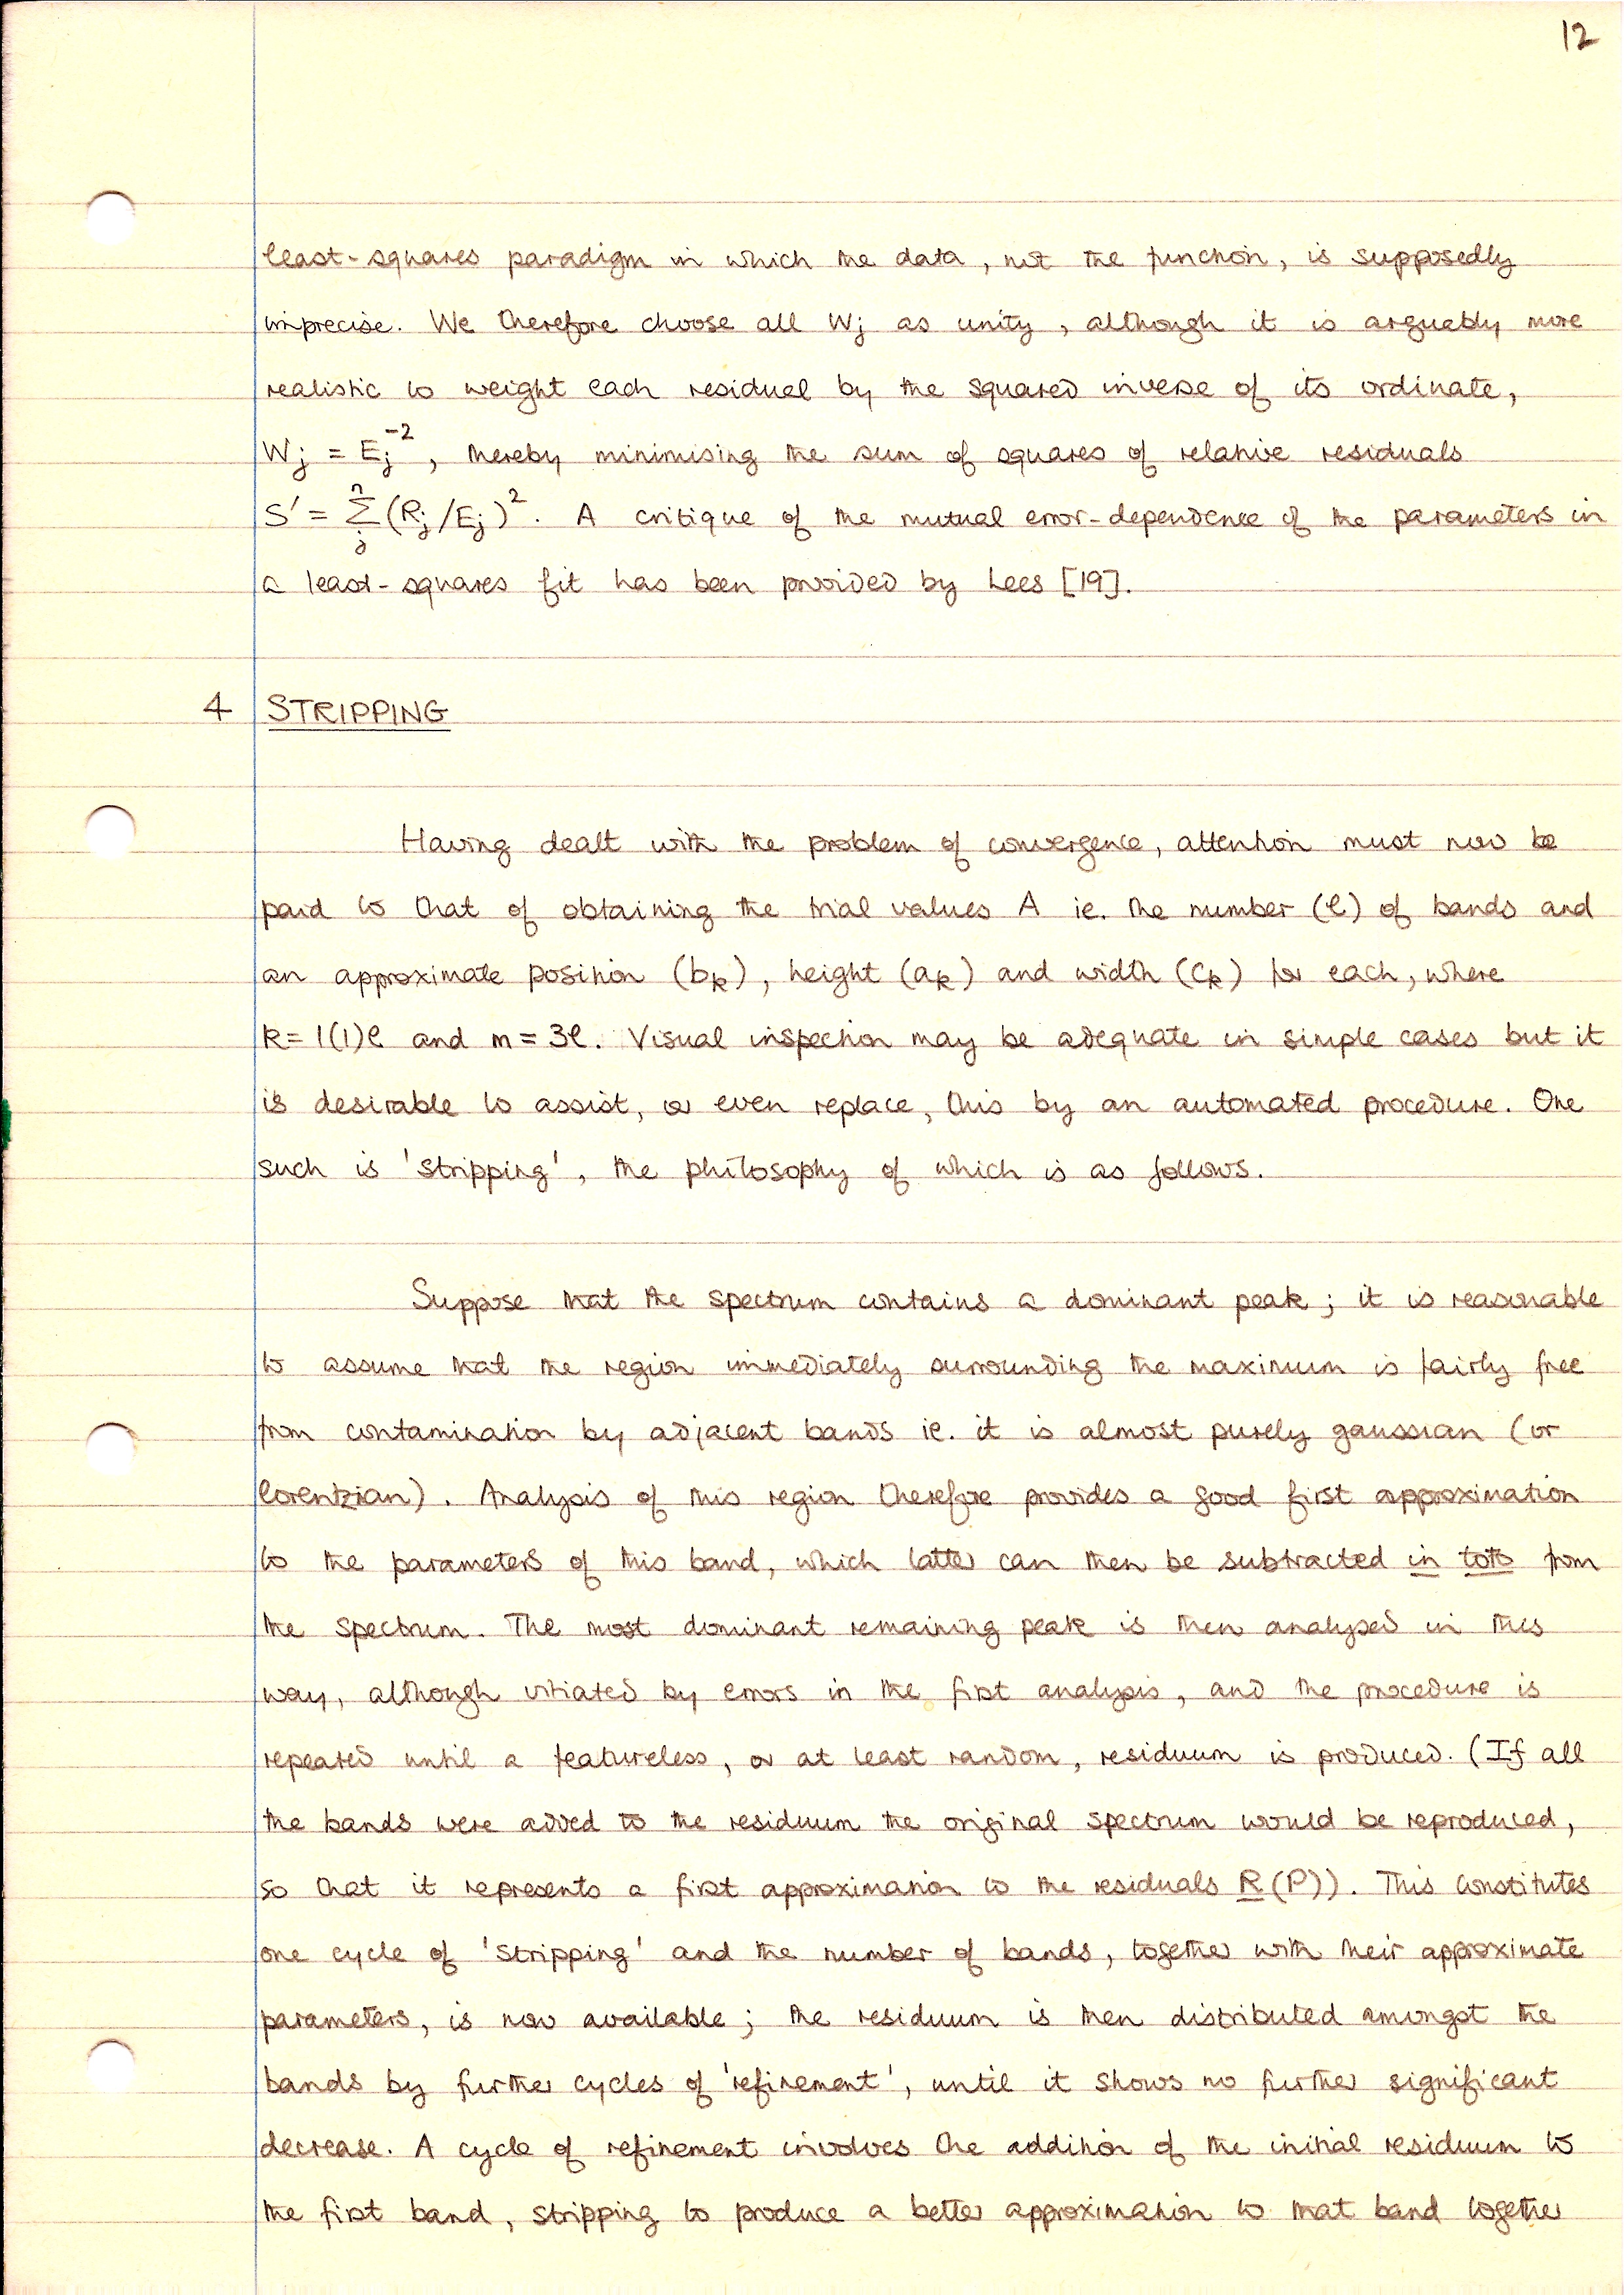 12
least-squares paradigm in which the data, not the function, is supposedly
imprecise. We therefore choose all Wj as unity, although it is arguably more
realistic to weight each residual by the squared inverse of its ordinate,
Wj = Ej⁻², thereby minimising the sum of squares of relative residuals
S' = Σⁿⱼ (Rj/Ej)². A critique of the mutual error-dependence of the parameters in
a least-squares fit has been provided by Lees [19].
4 STRIPPING
Having dealt with the problem of convergence, attention must now be
paid to that of obtaining the trial values A ie. the number (ℓ) of bands and
an approximate position (bk), height (ak) and width (ck) for each, where
k = 1(1)ℓ and m = 3ℓ. Visual inspection may be adequate in simple cases but it
is desirable to assist, or even replace, this by an automated procedure. One
such is 'stripping', the philosophy of which is as follows.
Suppose that the spectrum contains a dominant peak; it is reasonable
to assume that the region immediately surrounding the maximum is fairly free
from contamination by adjacent bands ie. it is almost purely gaussian (or
lorentzian). Analysis of this region therefore provides a good first approximation
to the parameters of this band, which latter can then be subtracted in toto from
the spectrum. The most dominant remaining peak is then analysed in this
way, although vitiated by errors in the first analysis, and the procedure is
repeated until a featureless, or at least random, residuum is produced. (If all
the bands were added to the residuum the original spectrum would be reproduced,
so that it represents a first approximation to the residuals R(P)). This constitutes
one cycle of 'stripping' and the number of bands, together with their approximate
parameters, is now available; the residuum is then distributed amongst the
bands by further cycles of 'refinement', until it shows no further significant
decrease. A cycle of refinement involves the addition of the initial residuum to
the first band, stripping to produce a better approximation to that band together